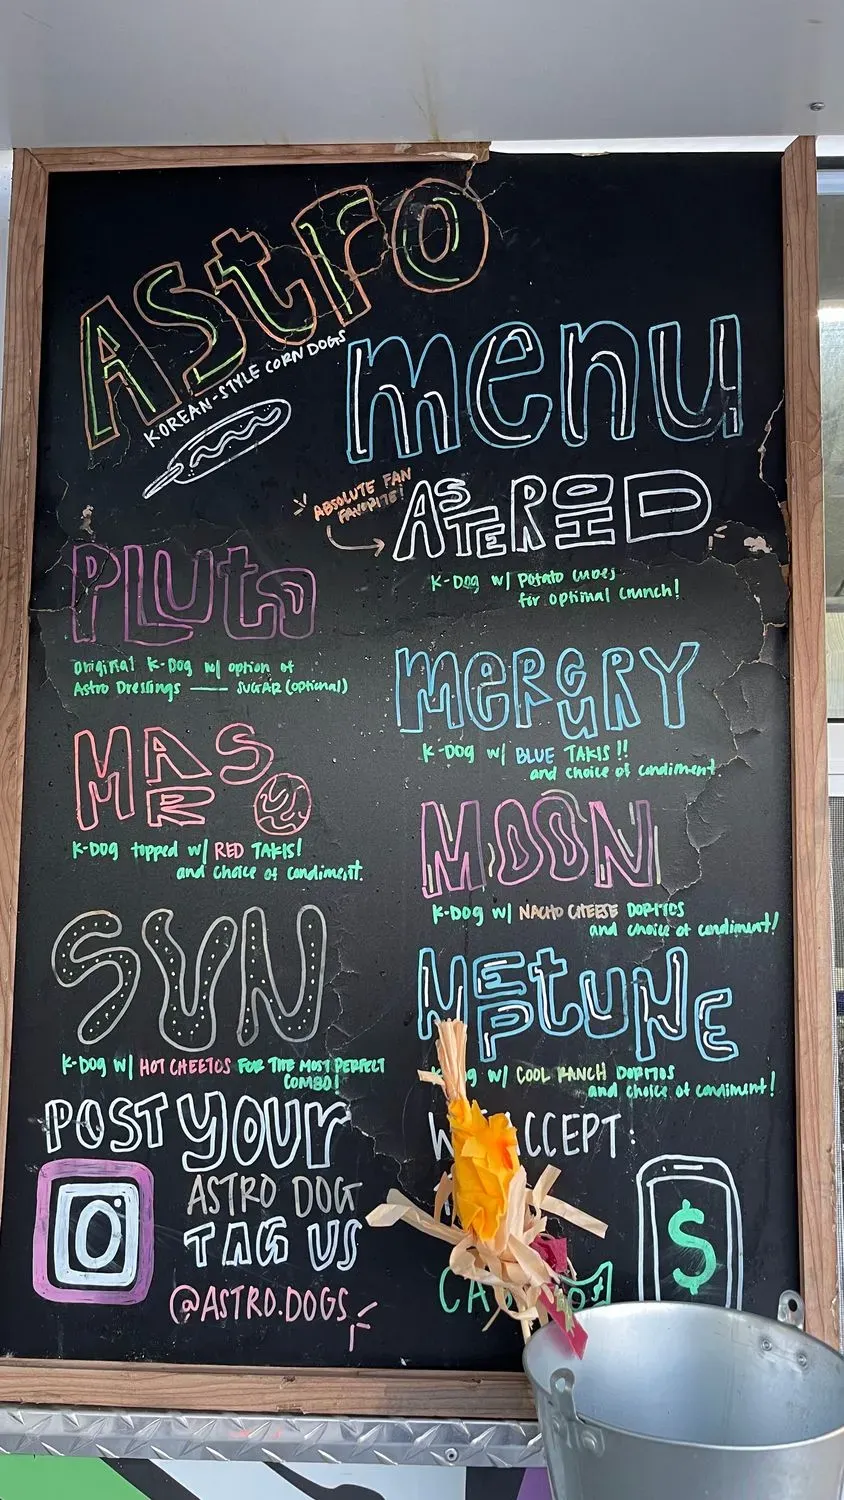 ASTRO
KOREAN-STYLE CORN DOGS
menu
ABSOLUTE FAN
FAVORITE!
ASTEROID
K-DOG w/ POTATO CUBES
for optimal crunch!
PLUTO
Original K-Dog w/ option of
Astro Dressings — SUGAR (optional)
MERCURY
K-DOG w/ BLUE TAKIS!!
and choice of condiment.
MARS
K-DOG topped w/ RED TAKIS!
and choice of condiment.
MOON
K-DOG w/ NACHO CHEESE DORITOS
and choice of condiment!
SUN
K-DOG w/ HOT CHEETOS FOR THE MOST PERFECT
COMBO!
NEPTUNE
w/ COOL RANCH DORITOS
and choice of condiment!
POST YOUR
ASTRO DOG
TAG US
@ASTRO.DOGS
ACCEPT:
$